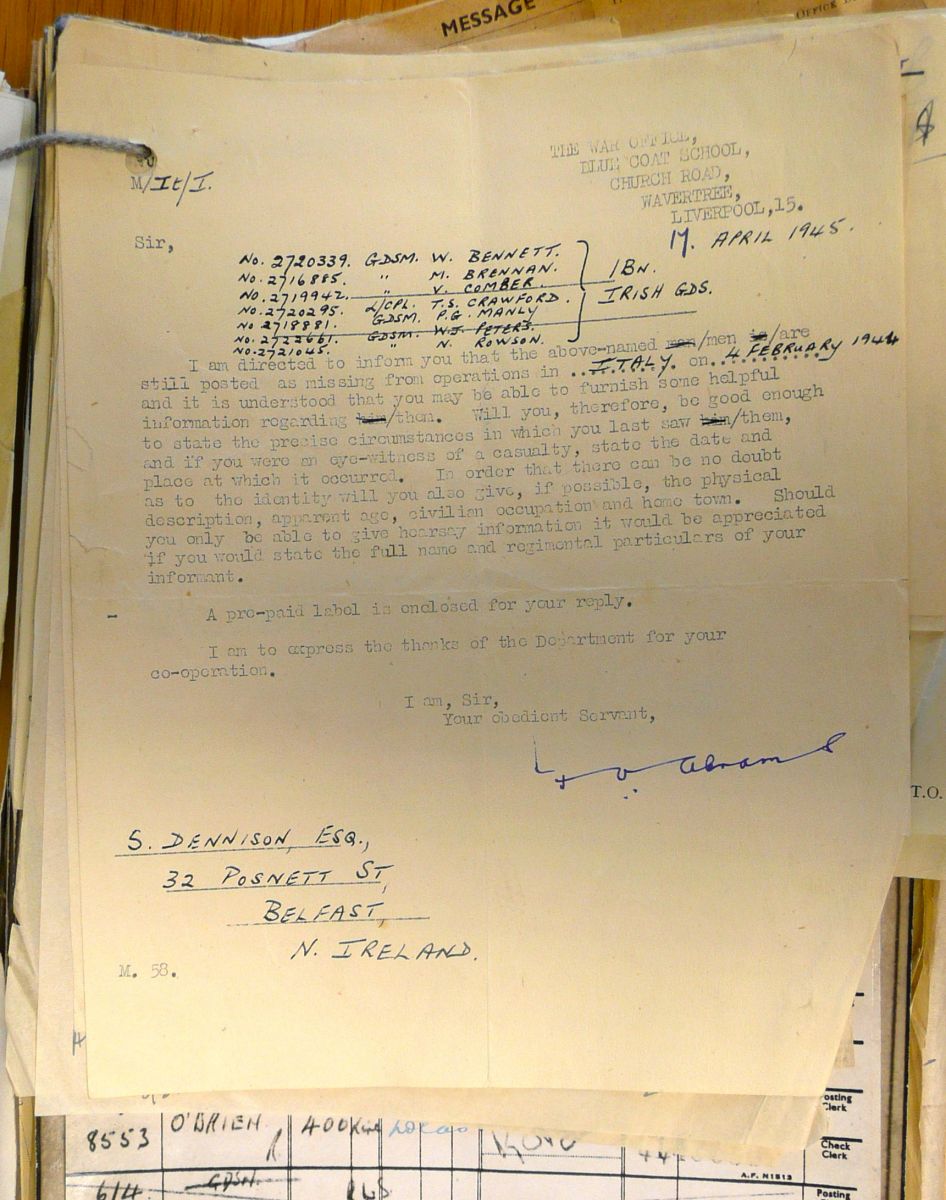 MESSAGE
THE WAR OFFICE,
BLUE COAT SCHOOL,
CHURCH ROAD,
WAVERTREE,
LIVERPOOL,15.
M/It/I.
17. APRIL 1945.
Sir,
No. 2720339. GDSM. W. BENNETT.
No. 2716885. " M. BRENNAN.
No. 2719942. " V. COMBER.
No. 2720295. L/CPL. T.S. CRAWFORD.
No 2718881. GDSM. P.G. MANLY
No. 2722661. GDSM. W.J. PETERS.
No. 2721045. " N. ROWSON.
1 BN.
IRISH GDS.
I am directed to inform you that the above-named man/men is/are
still posted as missing from operations in ..ITALY. on..4 FEBRUARY 1944
and it is understood that you may be able to furnish some helpful
information regarding him/them. Will you, therefore, be good enough
to state the precise circumstances in which you last saw him/them,
and if you were an eye-witness of a casualty, state the date and
place at which it occurred. In order that there can be no doubt
as to the identity will you also give, if possible, the physical
description, apparent age, civilian occupation and home town. Should
you only be able to give hearsay information it would be appreciated
if you would state the full name and regimental particulars of your
informant.
A pre-paid label is enclosed for your reply.
I am to express the thanks of the Department for your
co-operation.
I am, Sir,
Your obedient Servant,
Abrams
S. DENNISON, ESQ.,
32 POSNETT ST,
BELFAST,
N. IRELAND.
M. 58.
T.O.
8553 O'BRIEN 400
Posting
Clerk
Check
Clerk
A.F. N1513
614 GDSM.
Posting